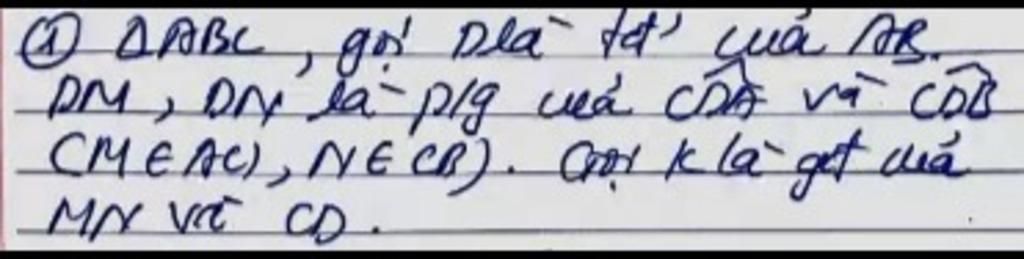 ① ΔABC, gọi D là tđ' của AB.
DM, DN là p/g của CDA và CDB
(M ∈ AC), N ∈ CB). Gọi K là gđ của
MN và CD.